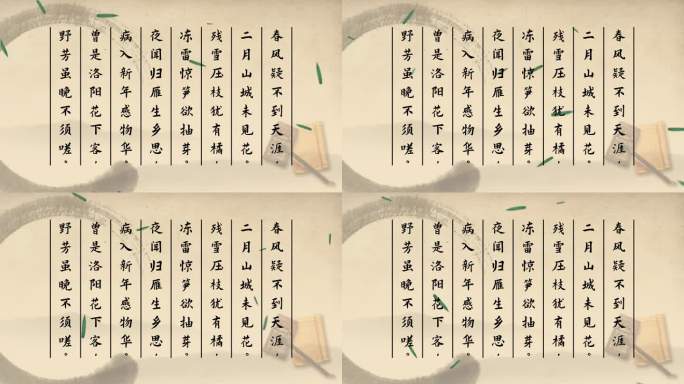 春风疑不到天涯，
二月山城未见花。
残雪压枝犹有橘，
冻雷惊笋欲抽芽。
夜闻归雁生乡思，
病入新年感物华。
曾是洛阳花下客，
野芳虽晚不须嗟。
春风疑不到天涯，
二月山城未见花。
残雪压枝犹有橘，
冻雷惊笋欲抽芽。
夜闻归雁生乡思，
病入新年感物华。
曾是洛阳花下客，
野芳虽晚不须嗟。
春风疑不到天涯，
二月山城未见花。
残雪压枝犹有橘，
冻雷惊笋欲抽芽。
夜闻归雁生乡思，
病入新年感物华。
曾是洛阳花下客，
野芳虽晚不须嗟。
春风疑不到天涯，
二月山城未见花。
残雪压枝犹有橘，
冻雷惊笋欲抽芽。
夜闻归雁生乡思，
病入新年感物华。
曾是洛阳花下客，
野芳虽晚不须嗟。